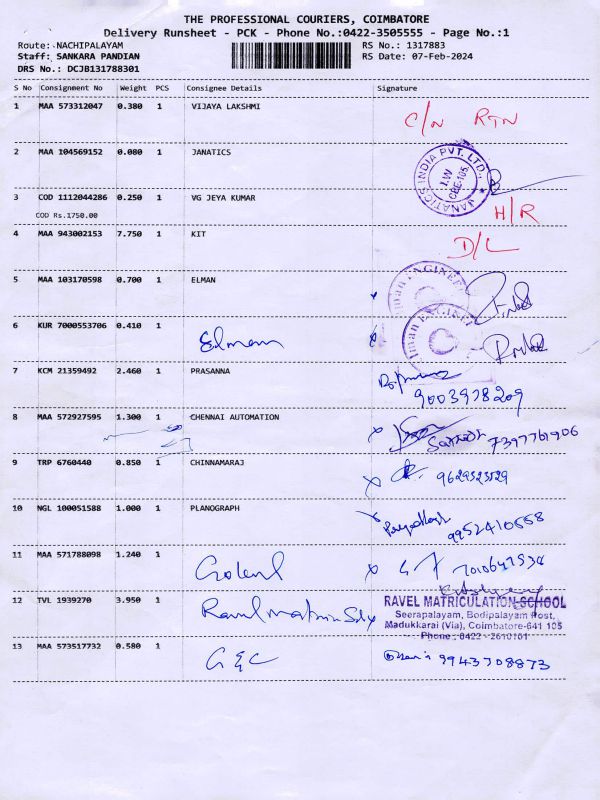 THE PROFESSIONAL COURIERS, COIMBATORE
Delivery Runsheet - PCK - Phone No.:0422-3505555 - Page No.:1
Route: NACHIPALAYAM
RS No.: 1317883
Staff: SANKARA PANDIAN
RS Date: 07-Feb-2024
DRS No.: DCJB131788301
S No Consignment No Weight PCS Consignee Details Signature
1 MAA 573312047 0.380 1 VIJAYA LAKSHMI C/N RTN
2 MAA 104569152 0.080 1 JANATICS JANATICS INDIA PVT. LTD.,
3 COD 1112044286 0.250 1 VG JEYA KUMAR H/R
COD Rs.1750.00
4 MAA 943002153 7.750 1 KIT D/L
5 MAA 103170598 0.700 1 ELMAN
6 KUR 7000553706 0.410 1 Elman
7 KCM 21359492 2.460 1 PRASANNA 9003978209
8 MAA 572927595 1.300 1 CHENNAI AUTOMATION 7397761906
9 TRP 6760440 0.850 1 CHINNAMARAJ 9629523529
10 NGL 100051588 1.000 1 PLANOGRAPH
11 MAA 571788098 1.240 1
12 TVL 1939270 3.950 1 RAVEL MATRICULATION SCHOOL
Seerapalayam, Bodipalayam Post,
Madukkarai (Via), Coimbatore-641 105
Phone : 0422 - 2610101
13 MAA 573517732 0.580 1 9943708873